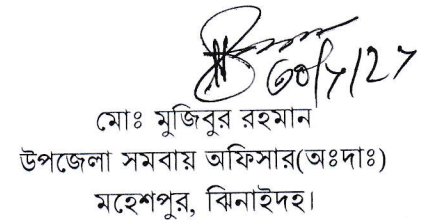 মোঃ মুজিবুর রহমান
উপজেলা সমবায় অফিসার(অঃদাঃ)
মহেশপুর, ঝিনাইদহ।